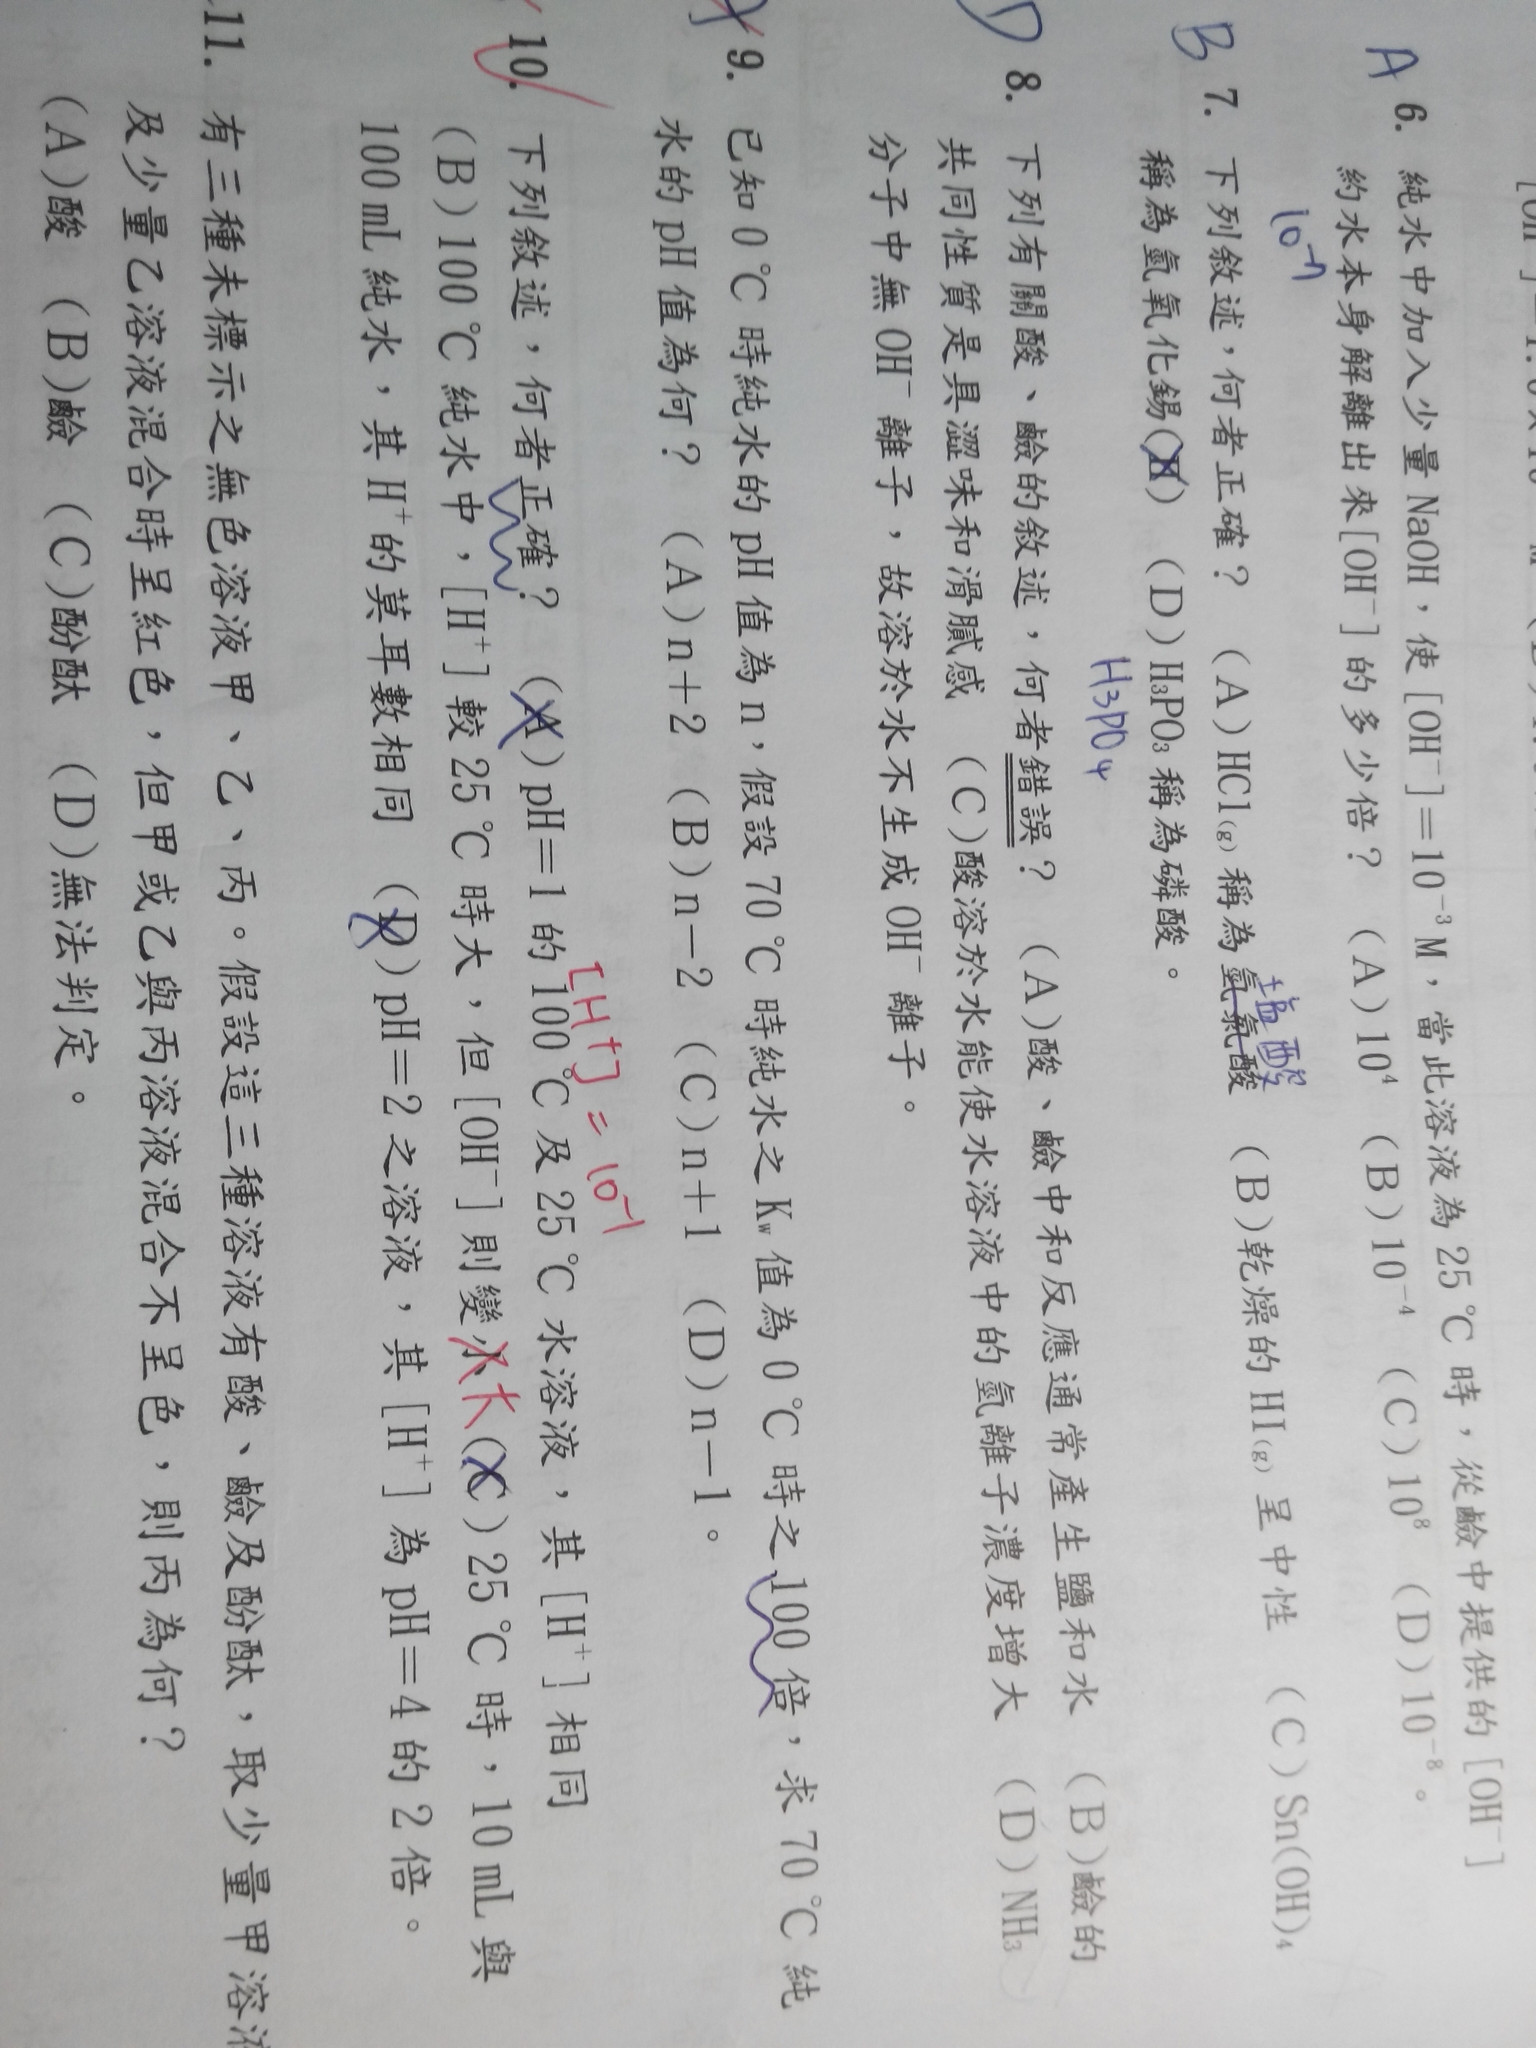 A 6. 純水中加入少量 NaOH，使[OH⁻]＝10⁻³M，當此溶液為 25 ℃ 時，從鹼中提供的[OH⁻]
約水本身解離出來[OH⁻]的多少倍？ (A)10⁴ (B)10⁻⁴ (C)10⁸ (D)10⁻⁸。
10⁻⁷
鹽酸
B 7. 下列敘述，何者正確？ (A)HCl(g) 稱為氫氯酸 (B)乾燥的 HI(g) 呈中性 (C)Sn(OH)₄
稱為氫氧化錫(Ⅱ) (D)H₃PO₃ 稱為磷酸。
H₃PO₄
D 8. 下列有關酸、鹼的敘述，何者錯誤？ (A)酸、鹼中和反應通常產生鹽和水 (B)鹼的
共同性質是具澀味和滑膩感 (C)酸溶於水能使水溶液中的氫離子濃度增大 (D)NH₃
分子中無 OH⁻ 離子，故溶於水不生成 OH⁻ 離子。
9. 已知 0 ℃ 時純水的 pH 值為 n，假設 70 ℃ 時純水之 Kw 值為 0 ℃ 時之 100 倍，求 70 ℃ 純
水的 pH 值為何？ (A)n＋2 (B)n－2 (C)n＋1 (D)n－1。
[H⁺] = 10⁻¹
10. 下列敘述，何者正確？ (A)pH＝1 的 100 ℃ 及 25 ℃ 水溶液，其[H⁺]相同
(B)100 ℃ 純水中，[H⁺]較 25 ℃ 時大，但[OH⁻]則變小 大 (C)25 ℃ 時，10 mL 與
100 mL 純水，其 H⁺ 的莫耳數相同 (D)pH＝2 之溶液，其[H⁺]為 pH＝4 的 2 倍。
11. 有三種未標示之無色溶液甲、乙、丙。假設這三種溶液有酸、鹼及酚酞，取少量甲溶液
及少量乙溶液混合時呈紅色，但甲或乙與丙溶液混合不呈色，則丙為何？
(A)酸 (B)鹼 (C)酚酞 (D)無法判定。